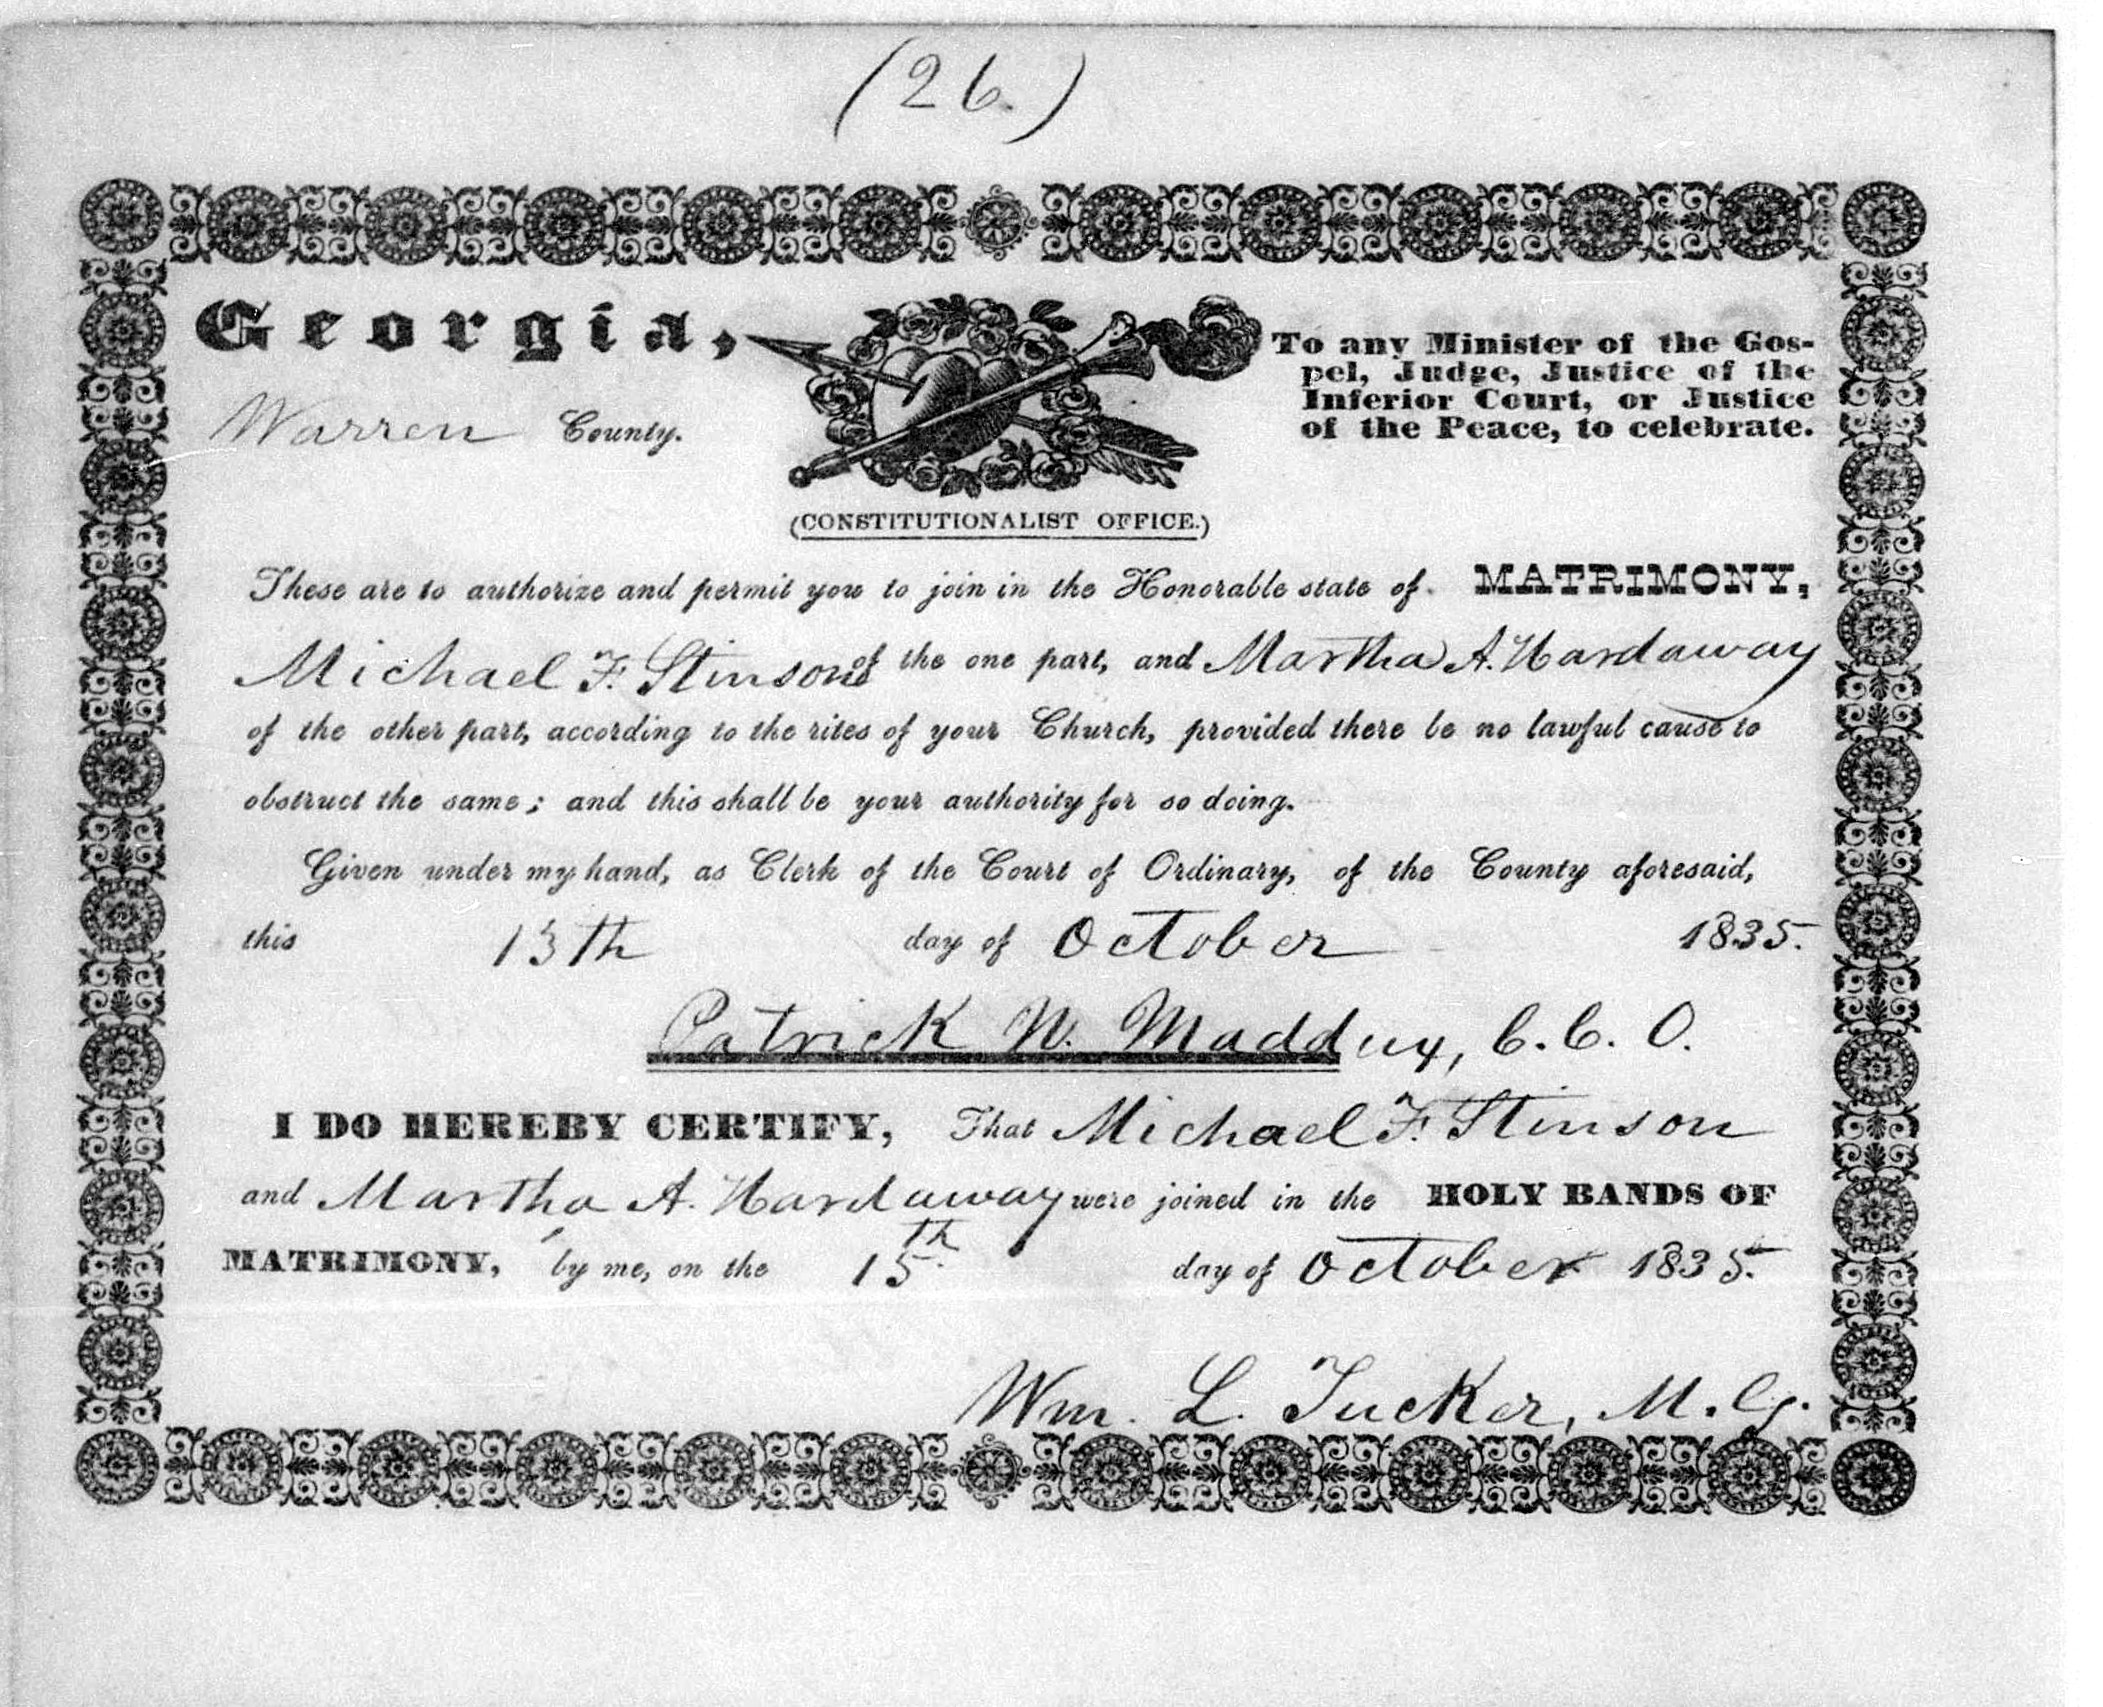 (26.)
Georgia,
Warren County.
To any Minister of the Gos-
pel, Judge, Justice of the
Inferior Court, or Justice
of the Peace, to celebrate.
(CONSTITUTIONALIST OFFICE.)
These are to authorize and permit you to join in the Honorable state of MATRIMONY,
Michael F. Stinson of the one part, and Martha A. Hardaway
of the other part, according to the rites of your Church, provided there be no lawful cause to
obstruct the same; and this shall be your authority for so doing.
Given under my hand, as Clerk of the Court of Ordinary, of the County aforesaid,
this 13th day of October 1835.
Patrick N. Maddux, C. C. O.
I DO HEREBY CERTIFY, That Michael F. Stinson
and Martha A. Hardaway were joined in the HOLY BANDS OF
MATRIMONY, by me, on the 15th day of October 1835.
Wm. L. Tucker, M. G.